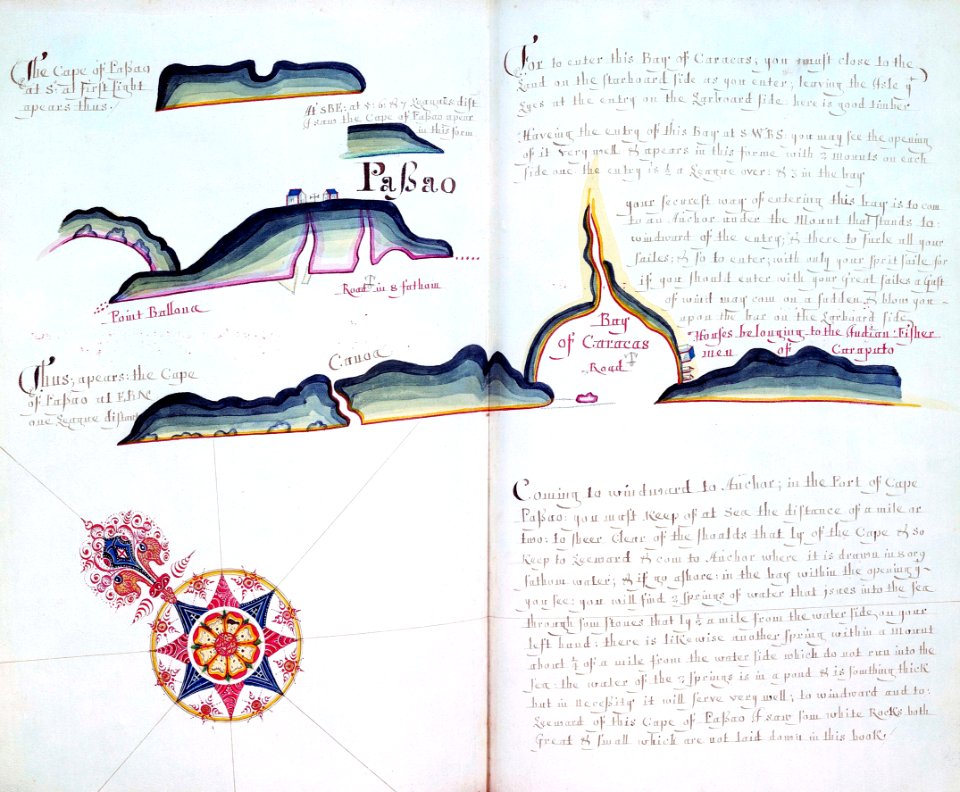 The Cape of Paßao
at S: at First Sight
apears thus.
At SBE: at 5: 6: & 7 Leagues dist
I saw the Cape of Paßao apear
in this form
Paßao
Point Ballona
Road in 8 fathom
Thus, apears: the Cape
of Paßao at
one League distant
Canoa
For to enter this Bay of Caracas, you must close to the
Land on the starboard side as you enter, leaving the Isle yt
Lyes at the entry on the Larboard side here is good timber
Haveing the entry of this Bay at SWBS: you may see the opening
of it very well & apears in this forme with 2 mounts on each
side one the entry is ½ a League over: & 3 in the bay
your securest way of entering this bay is to com
to an Anchor under the Mount that stands to
windward of the entry; & there to furle all your
sailes; & so to enter; with only your sprit saile for
if you should enter with your Great sailes a Gust
of wind may com on a sudden & blow you
upon the bar on the Larboard side
Bay
of Caracas
Road
Houses belonging to the Indian: Fisher
men of Caraputo
Coming to windward to Anchor; in the Port of Cape
Paßao: you must keep of at Sea the distance of a mile or
two: to sheer Clear of the shoalds that ly of the Cape & so
keep to Leeward & com to Anchor where it is drawn in 8 or 9
fathom water; & if go ashore: in the bay within the opening yt
you see: you will find 2 springs of water that isues into the sea
through som stones that ly ½ a mile from the water side, on your
left hand: there is likewise another spring within a mount
about ½ of a mile from the water side which do not run into the
sea: the water of the 2 springs is in a pond & is somthing thick
but in necessity it will serve very well; to windward and to
Leeward of this Cape of Paßao I saw som white Rocks both
Great & small which are not laid down in this book